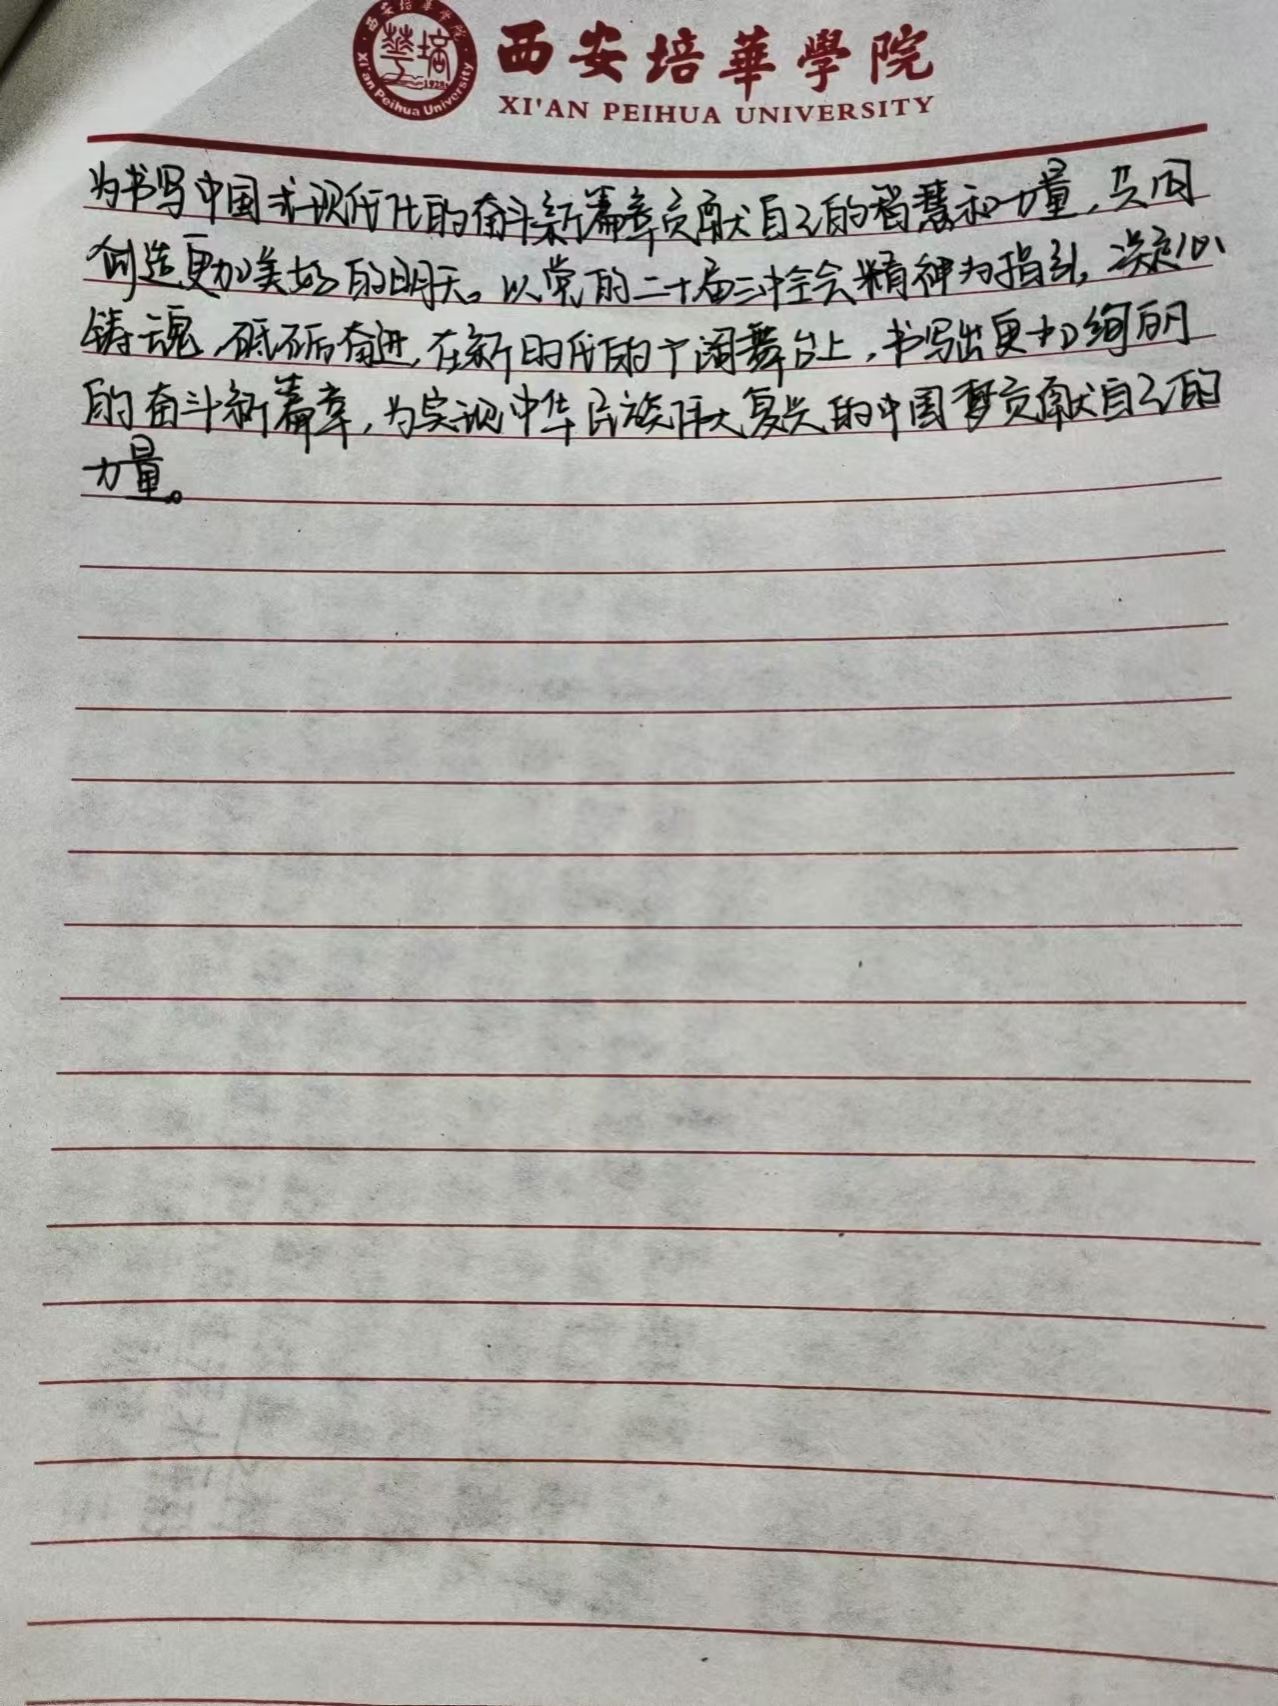 西安培华学院
Xi'an Peihua University
1928
西安培華學院
XI'AN PEIHUA UNIVERSITY
为书写中国式现代化的奋斗新篇章贡献自己的智慧和力量，共同
创造更加美好的明天。以党的二十届三中全会精神为指引，凝心
铸魂，砥砺奋进，在新时代的广阔舞台上，书写出更加绚丽
的奋斗新篇章，为实现中华民族伟大复兴的中国梦贡献自己的
力量。